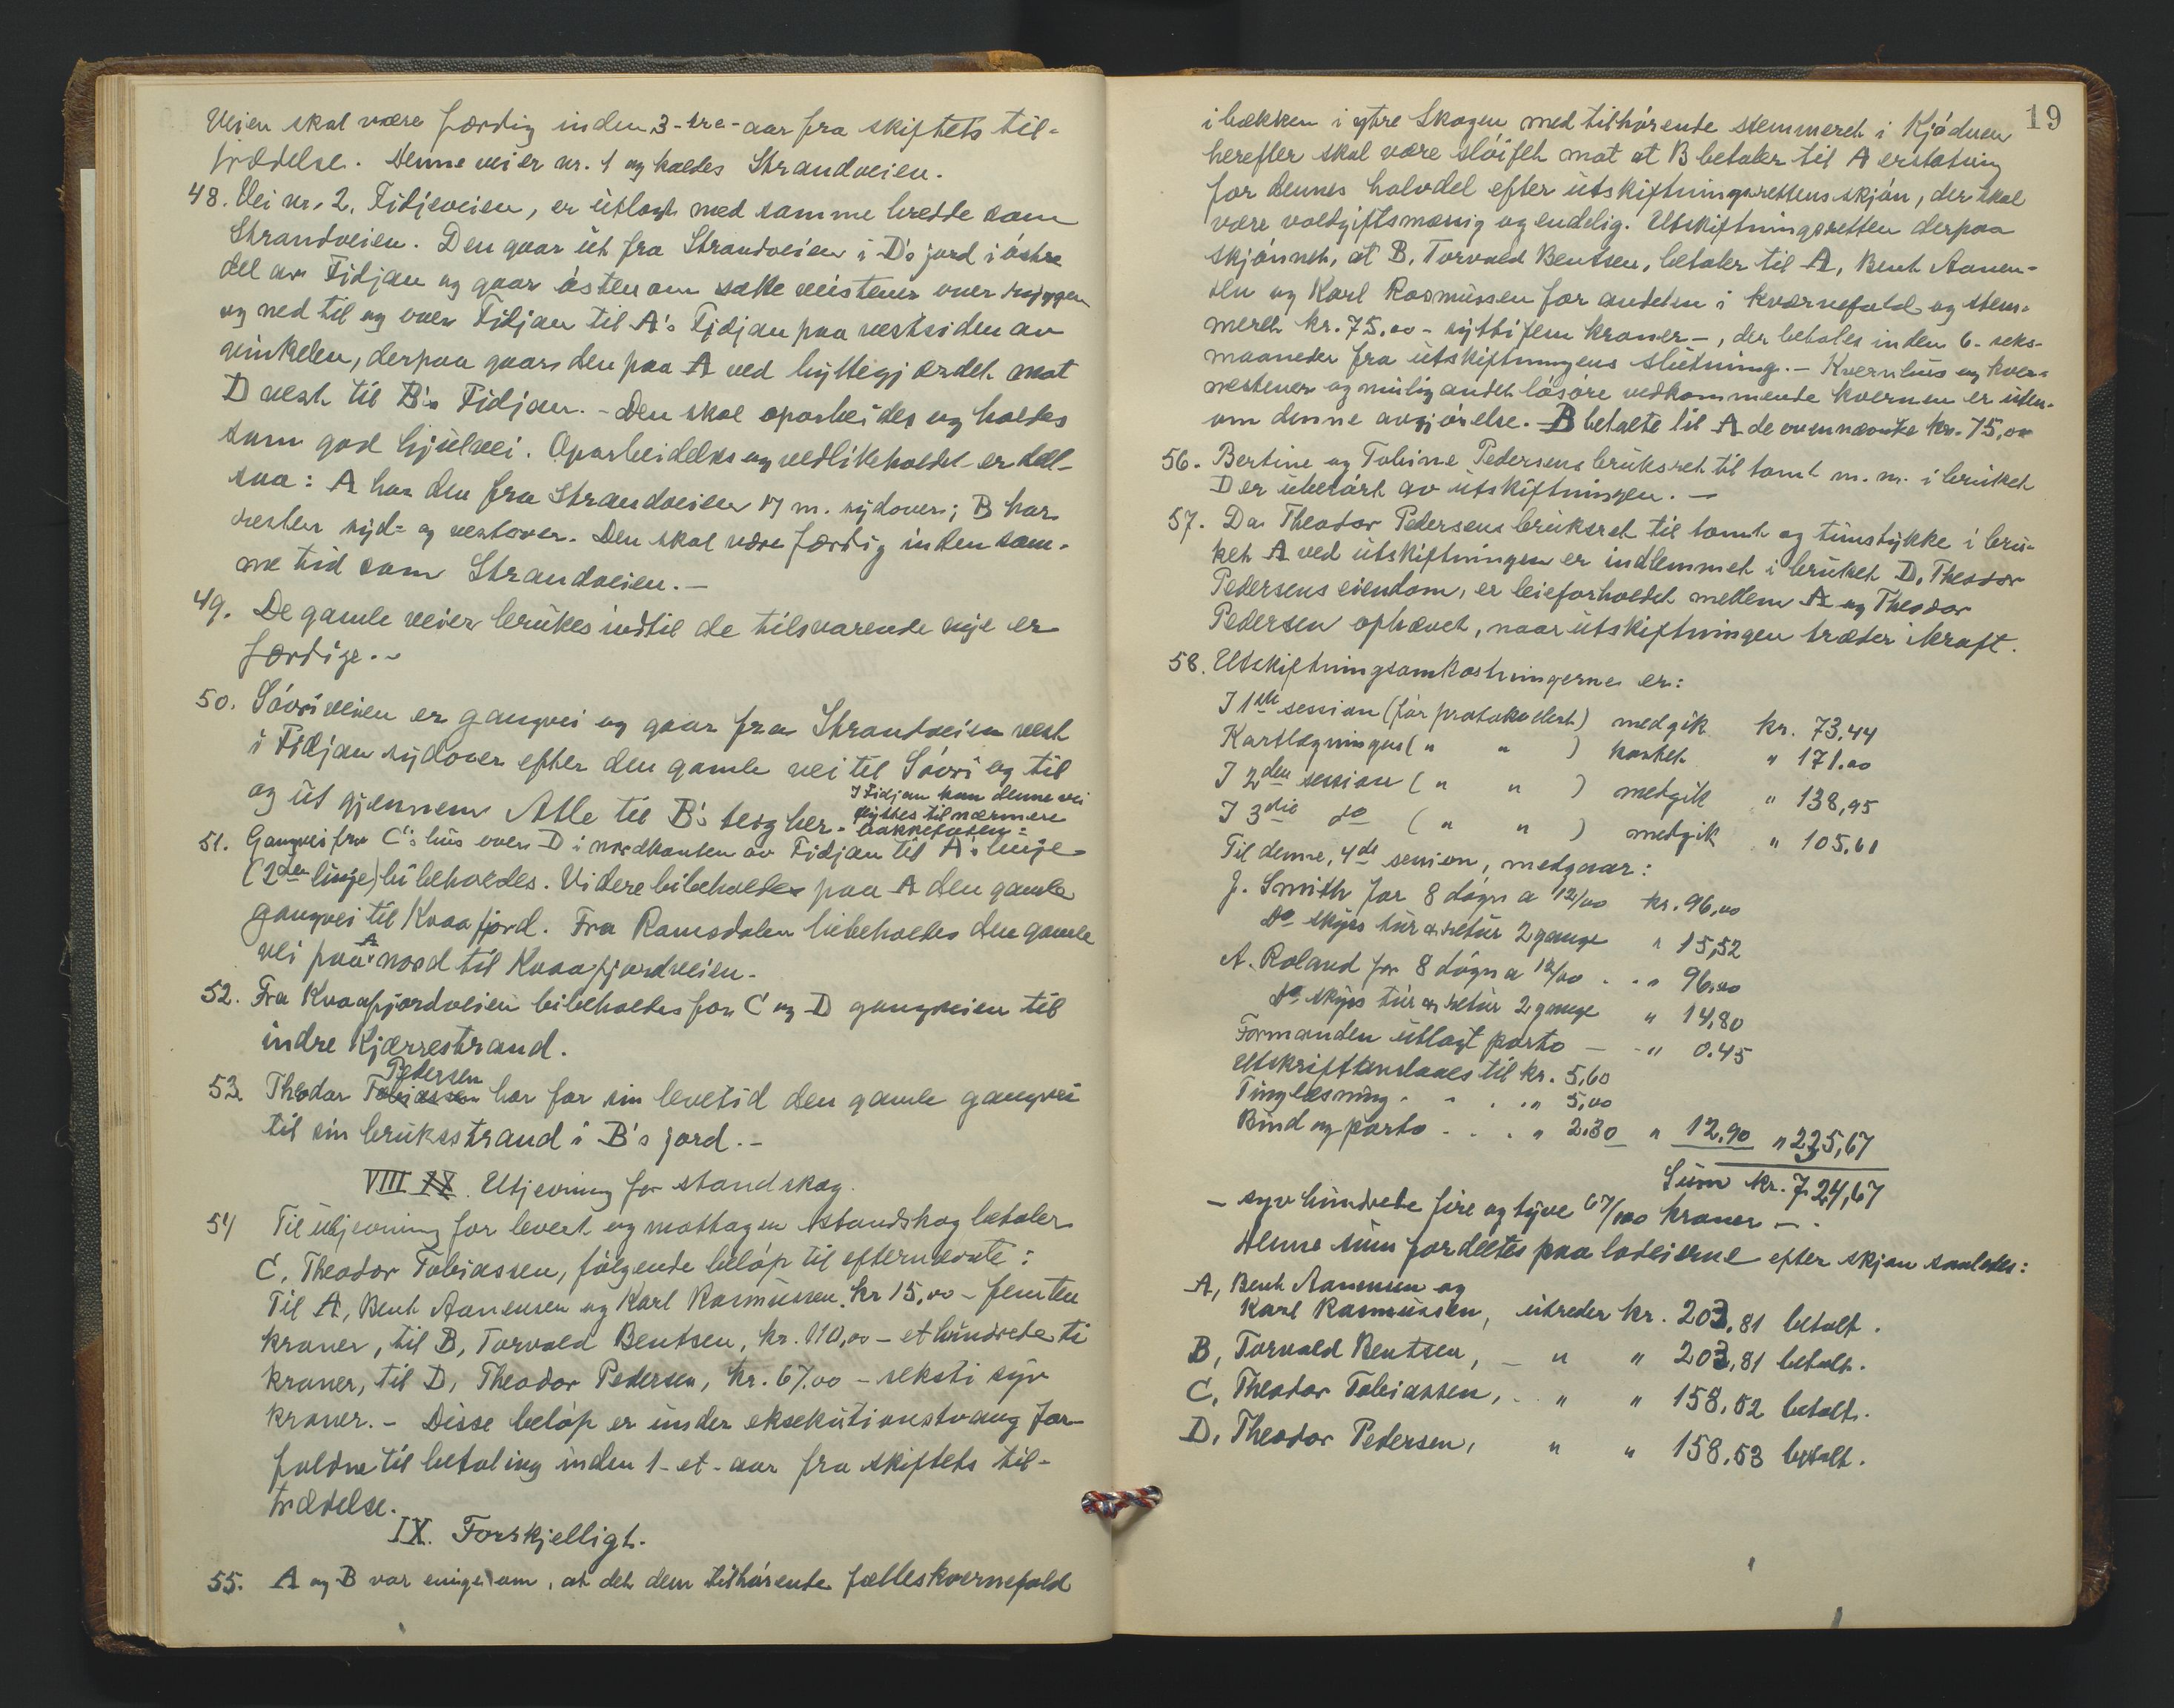 Veien skal være færdig inden 3-tre-aar fra skiftets til-
trædelse. Denne vei er nr. 1 og kaldes Strandveien.
48. Vei nr. 2. Fidjeveien, er utlagt med samme bredde som
Strandveien. Den gaar ut fra Strandveien i D's jord i østre
del av Fidjan og gaar østenom sætte veistener over ryggen
og ned til og over Fidjan til A's Fidjan paa vestsiden av
vinkelen, derpaa gaar den paa A ved hyttegjærdet mot
D vest til B's Fidjan. - Den skal oparbeides og holdes
som god hjulvei. Oparbeidelse og vedlikeholdet er delt
saa: A har den fra Strandveien 17 m. sydover; B har
resten syd- og vestover. Den skal være færdig inden sam-
me tid som Strandveien. -
49. De gamle veier brukes indtil de tilsvarende nye er
færdige. -
50. Sóvriveien er gangvei og gaar fra Strandveien vest
i Fidjan sydover efter den gamle vei til Sóvri og til
og ut gjennem Atle til B's teig her. I Fidjan kan denne vei
flyttes til nærmere
bakkefoten. =
51. Gangvei fra C's hus over D i nordkanten av Fidjan til A's linje
(2den linje) bibeholdes. Videre bibeholdes paa A den gamle
gangvei til Kvaafjord. Fra Ramsdalen bibeholdes den gamle
vei paa A nord til Kvaafjordveien.
52. Fra Kvaafjordveien bibeholdes for C og D gangveien til
indre Kjærrestrand.
Pedersen
53. Theodor Tobiassen har for sin levetid den gamle gangvei
til sin bruksstrand i B's jord. -
VIII IX. Utjevning for standskog.
54 Til utjevning for levert og mottagen standskog betaler
C, Theodor Tobiassen, følgende beløp til efternevnte:
Til A, Bent Aanensen og Karl Rasmussen, kr 15,00 - femten
kroner, til B, Torvald Bentsen, kr. 110,00 - et hundrede ti
kroner, til D, Theodor Pedersen, kr. 67.00 - seksti syv
kroner. - Disse beløp er under eksekutionstvang for-
faldne til betaling inden 1-et-aar fra skiftets til-
trædelse.
IX. Forskjelligt.
55. A og B var enige om, at det dem tilhørende fælleskvernefald
19
i bækken i ytre Skogen med tilhørende stemmeret i Kjødnen
herefter skal være sløifet mot at B betaler til A erstatning
for dennes halvdel efter utskiftningsrettens skjøn, der skal
være voldgiftsmæssig og endelig. Utskiftningsretten derpaa
skjønnet, at B, Torvald Bentsen, betaler til A, Bent Aanen-
sen og Karl Rasmussen for andelen i kværnefald og stem-
meret kr. 75.00 - sytti fem kroner -, der betales inden 6 - seks-
maaneder fra utskiftningens slutning. - Kvernhus og kver-
nestener og mulig andet løsøre vedkommende kvernen er uten-
om denne avgjørelse. - B betalte til A de ovennævnte kr. 75,00
56. Bertine og Tobine Pedersens bruksret til tomt m. m. i bruket
D er uberørt av utskiftningen. -
57. Da Theodor Pedersens bruksret til tomt og tunstykke i bru-
ket A ved utskiftningen er indlemmet i bruket D, Theodor
Pedersens eiendom, er leieforholdet mellem A og Theodor
Pedersen ophævet, naar utskiftningen træder i kraft.
58. Utskiftningsomkostningerne er:
I 1ste session (før protokollert) medgik kr. 73,44
Kartlægningen ( " " ) kostet " 171.00
I 2den session ( " " ) medgik " 138,95
I 3die do ( " " ) medgik " 105,61
Til denne, 4de session, medgaar:
J. Smith for 8 døgn a 12/00 kr. 96,00
do skyss tur & retur 2 gange " 15,52
A. Roland for 8 døgn a 12/00 . . " 96,00
do skyss tur & retur 2 gange " 14,80
Formanden utlagt porto - - " 0.45
Utskrift anslaaes til kr. 5,60
Tinglæsning . . . . " 5,00
Bind og porto . . . " 2.30 " 12,90 " 235,67
Sum kr. 724,67
- syv hundrede fire og tyve 67/100 kroner - .
Denne sum fordeltes paa lodeierne efter skjøn saaledes:
A, Bent Aanensen og
Karl Rasmussen, utreder kr. 203,81 betalt.
B, Torvald Bentsen, - " " 203,81 betalt.
C, Theodor Tobiassen, . " " 158,52 betalt.
D, Theodor Pedersen, " " 158,53 betalt.